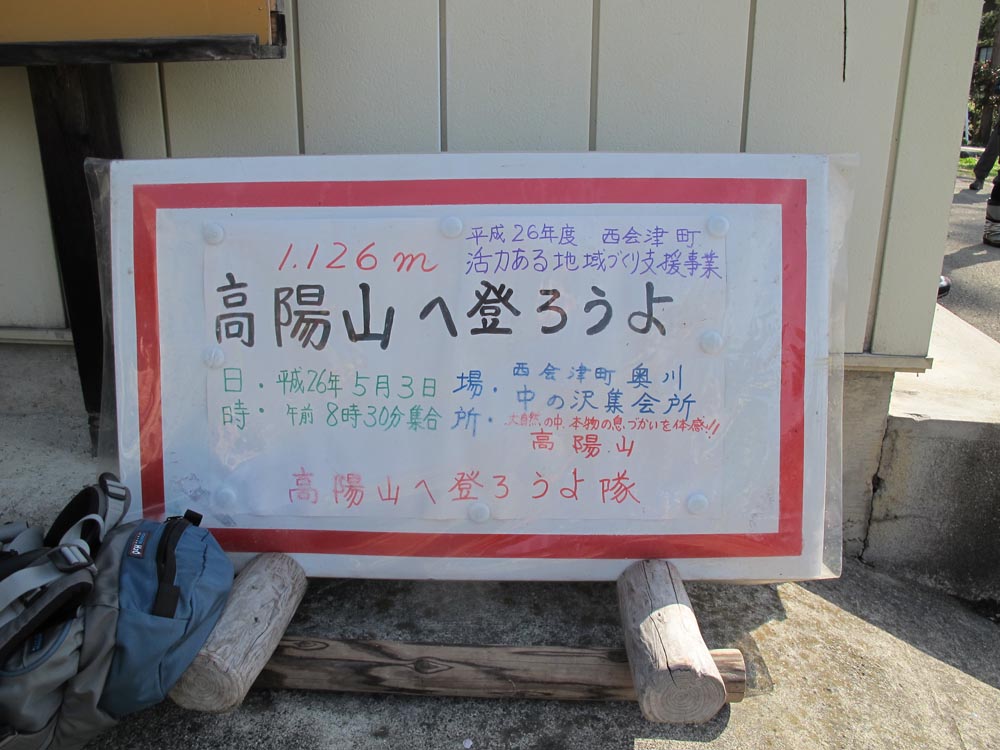 1.126m
平成26年度 西会津町
活力ある地域づくり支援事業
高陽山へ登ろうよ
日・平成26年5月3日
時・午前8時30分集合
場所・西会津町奥川
中の沢集会所
大自然の中、本物の息づかいを体感!!
高陽山
高陽山へ登ろうよ隊